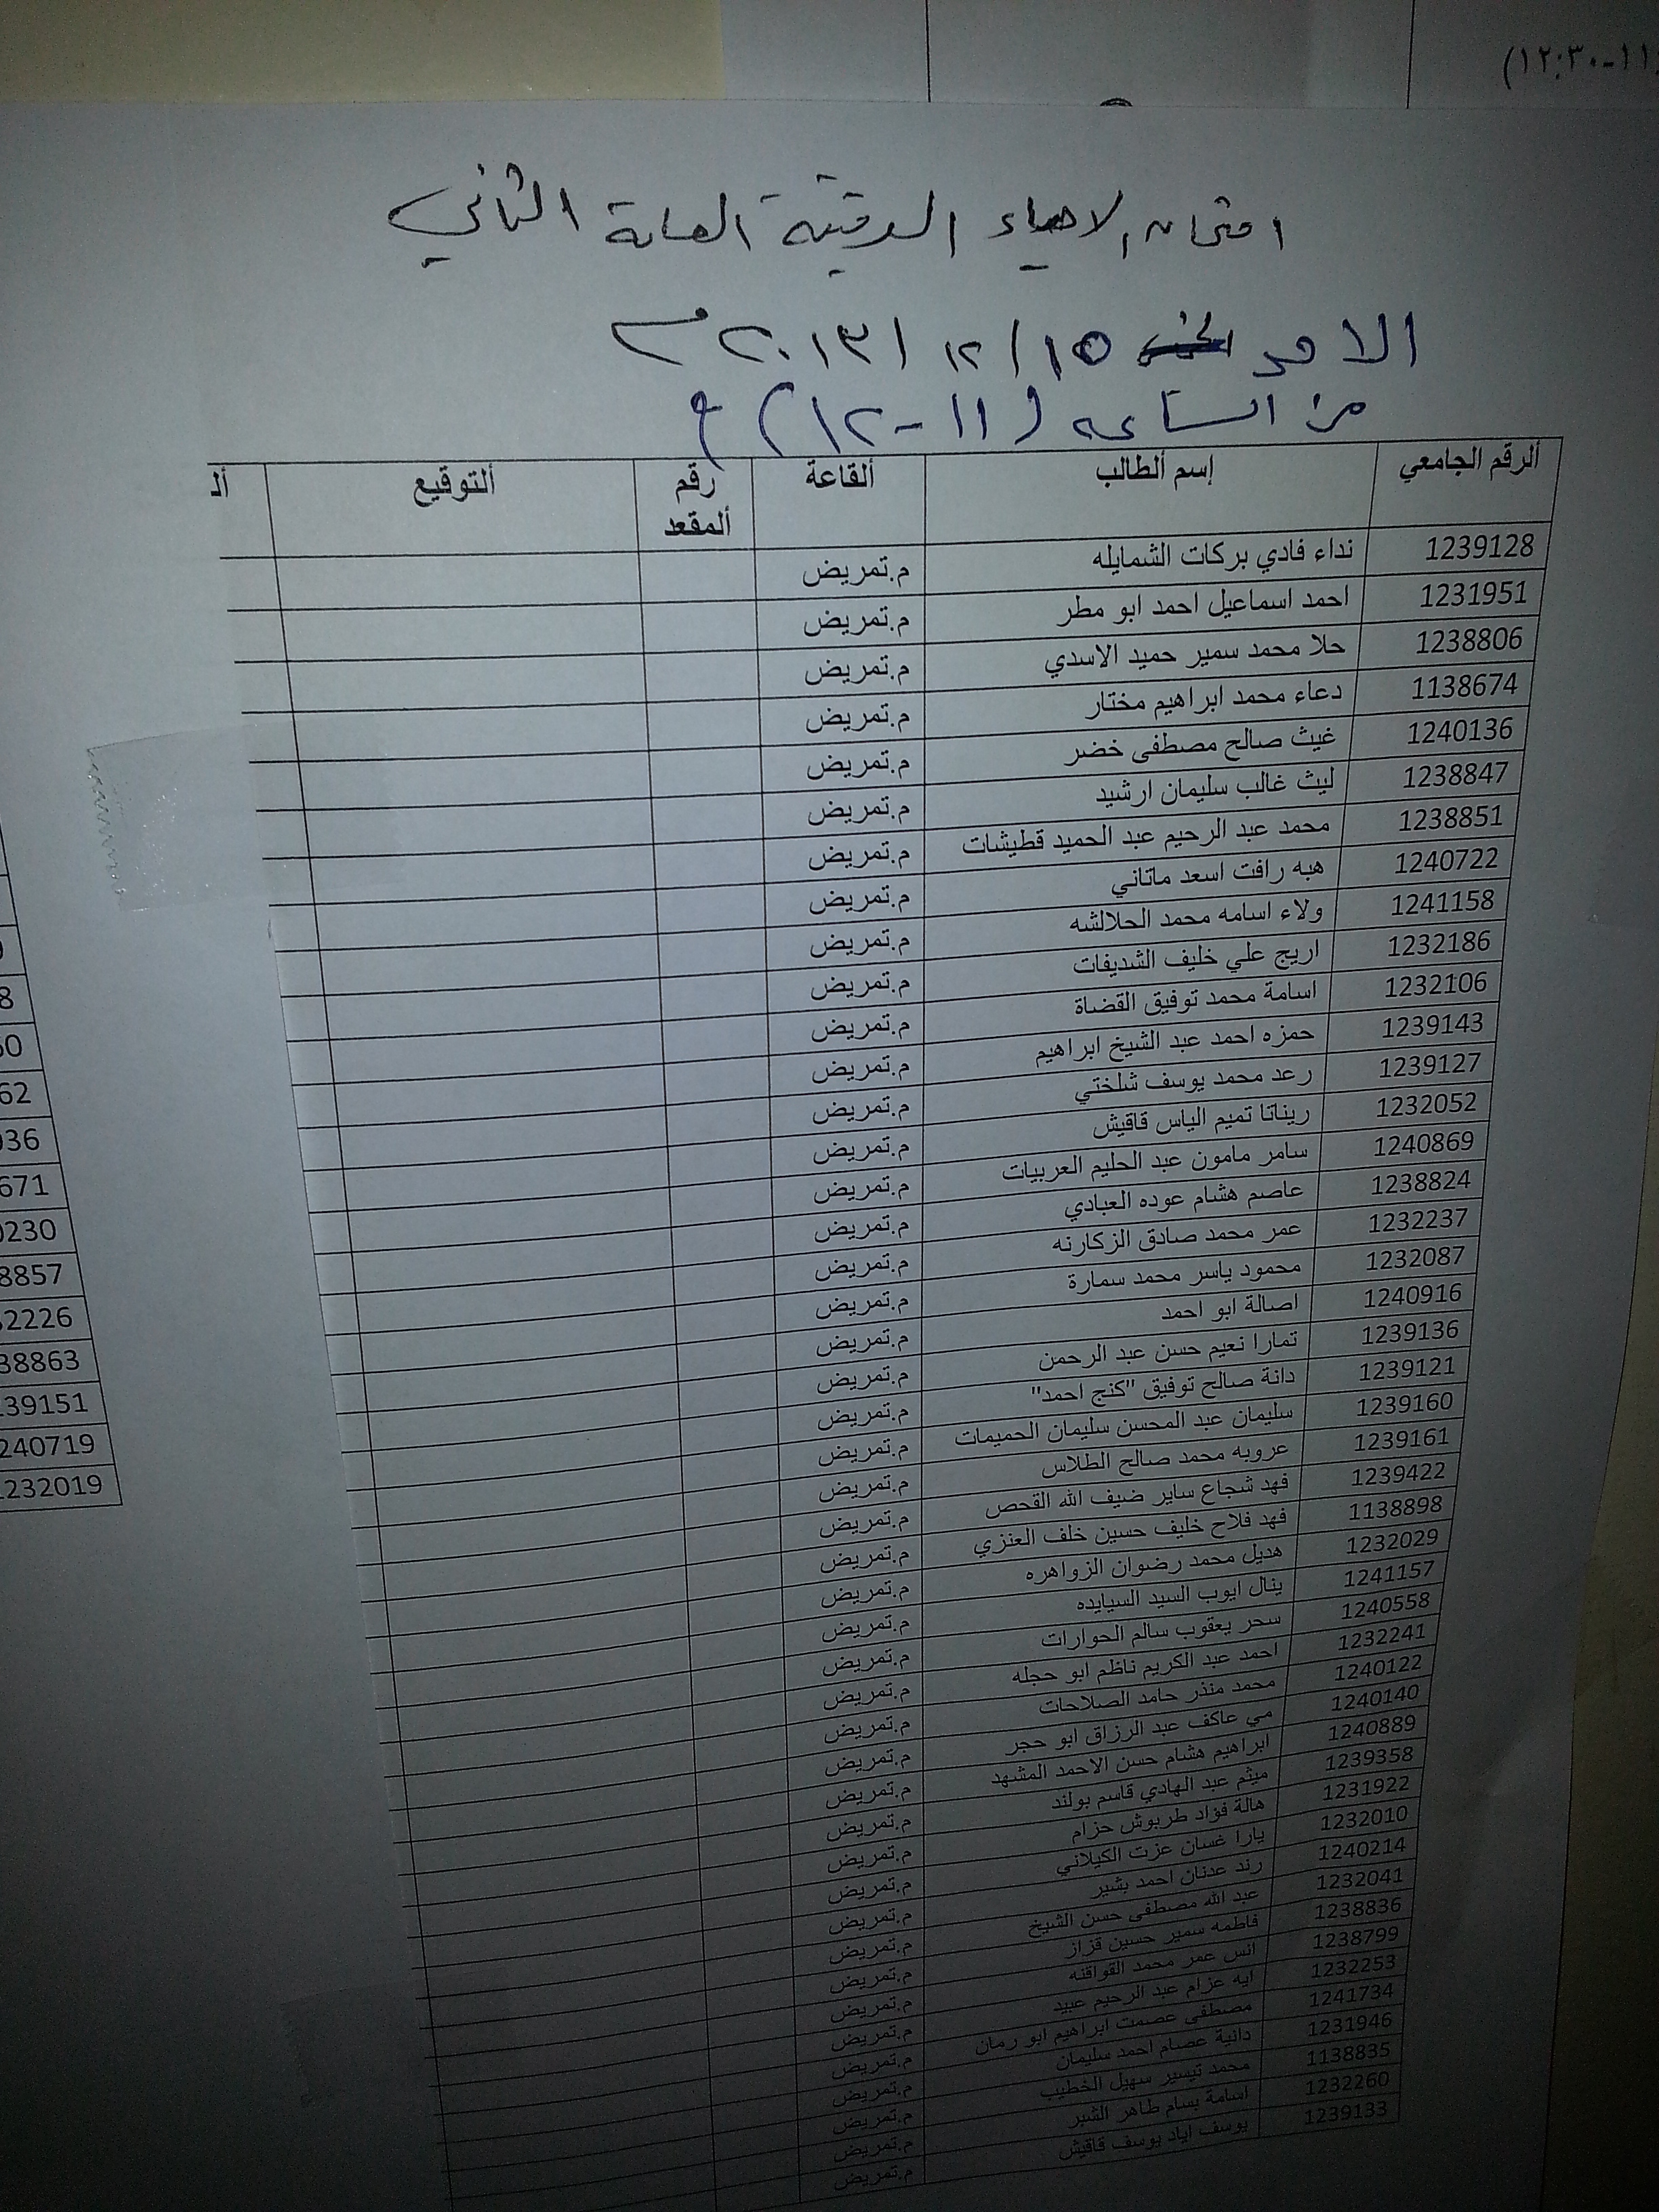 ١١-١٢:٣٠)
امتحان الاحياء الدقيقة العامة الثاني
الاحد ١٥ / ١٢ / ٢٠١٣ م
من الساعة (١١-١٢) ع
ألرقم الجامعي إسم ألطالب ألقاعة رقم ألمقعد ألتوقيع ألـ
1239128 نداء فادي بركات الشمايله م.تمريض
1231951 احمد اسماعيل احمد ابو مطر م.تمريض
1238806 حلا محمد سمير حميد الاسدي م.تمريض
1138674 دعاء محمد ابراهيم مختار م.تمريض
1240136 غيث صالح مصطفى خضر م.تمريض
1238847 ليث غالب سليمان ارشيد م.تمريض
1238851 محمد عبد الرحيم عبد الحميد قطيشات م.تمريض
1240722 هبه رافت اسعد ماتاني م.تمريض
1241158 ولاء اسامه محمد الحلالشه م.تمريض
1232186 اريج علي خليف الشديفات م.تمريض
1232106 اسامة محمد توفيق القضاة م.تمريض
1239143 حمزه احمد عبد الشيخ ابراهيم م.تمريض
1239127 رعد محمد يوسف شلختي م.تمريض
1232052 ريناتا تميم الياس قاقيش م.تمريض
1240869 سامر مامون عبد الحليم العربيات م.تمريض
1238824 عاصم هشام عوده العبادي م.تمريض
1232237 عمر محمد صادق الزكارنه م.تمريض
1232087 محمود ياسر محمد سمارة م.تمريض
1240916 اصالة ابو احمد م.تمريض
1239136 تمارا نعيم حسن عبد الرحمن م.تمريض
1239121 دانة صالح توفيق "كنج احمد" م.تمريض
1239160 سليمان عبد المحسن سليمان الحميمات م.تمريض
1239161 عروبه محمد صالح الطلاس م.تمريض
1239422 فهد شجاع ساير ضيف الله القحص م.تمريض
1138898 فهد فلاح خليف حسين خلف العنزي م.تمريض
1232029 هديل محمد رضوان الزواهره م.تمريض
1241157 ينال ايوب السيد السيايده م.تمريض
1240558 سحر يعقوب سالم الحوارات م.تمريض
1232241 احمد عبد الكريم ناظم ابو حجله م.تمريض
1240122 محمد منذر حامد الصلاحات م.تمريض
1240140 مي عاكف عبد الرزاق ابو حجر م.تمريض
1240889 ابراهيم هشام حسن الاحمد المشهد م.تمريض
1239358 ميثم عبد الهادي قاسم بولند م.تمريض
1231922 هالة فؤاد طربوش حزام م.تمريض
1232010 يارا غسان عزت الكيلاني م.تمريض
1240214 رند عدنان احمد بشير م.تمريض
1232041 عبد الله مصطفى حسن الشيخ م.تمريض
1238836 فاطمه سمير حسين قزاز م.تمريض
1238799 انس عمر محمد القواقنه م.تمريض
1232253 ايه عزام عبد الرحيم عبيد م.تمريض
1241734 مصطفى عصمت ابراهيم ابو رمان م.تمريض
1231946 دانية عصام احمد سليمان م.تمريض
1138835 محمد تيسير سهيل الخطيب م.تمريض
1232260 اسامة بسام طاهر الشبر م.تمريض
1239133 يوسف اياد يوسف قاقيش م.تمريض
8
60
62
036
671
0230
8857
32226
38863
139151
240719
1232019